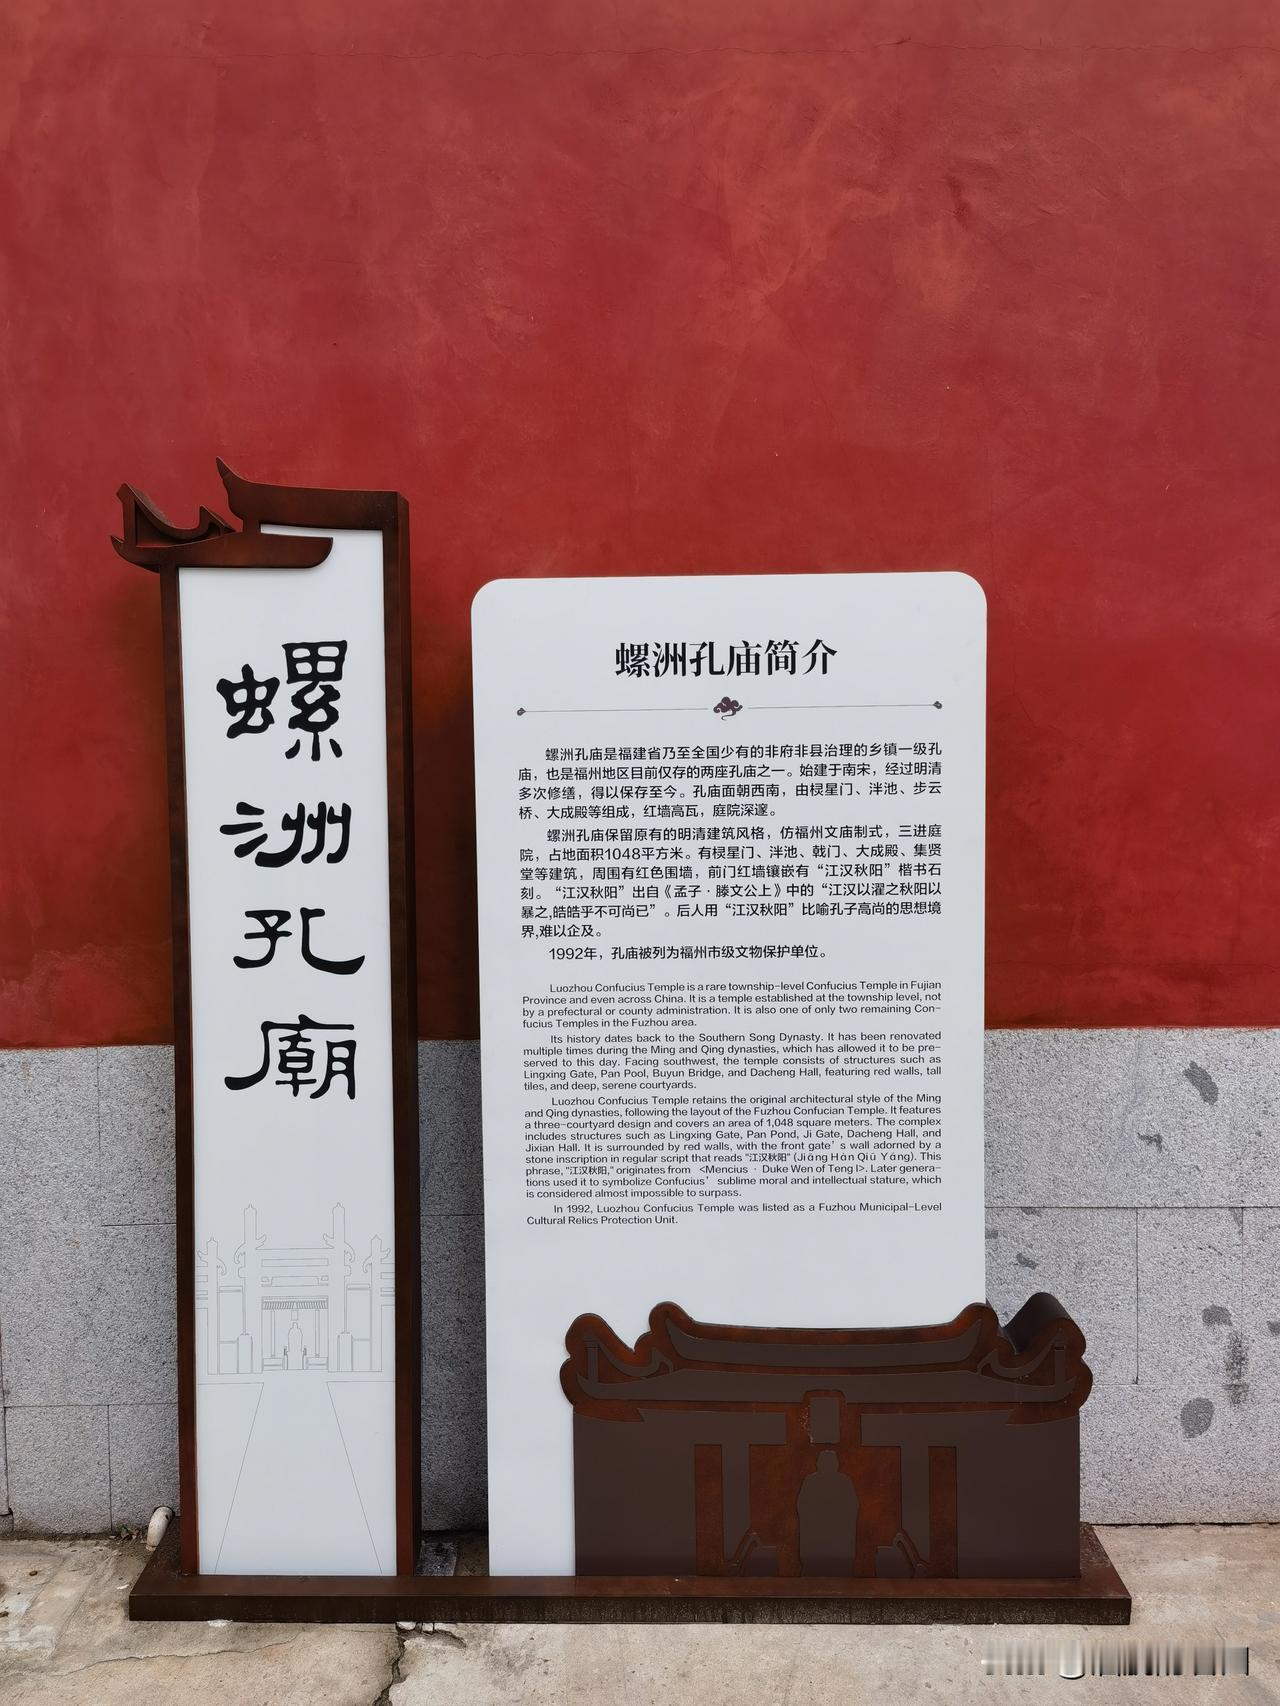 螺洲孔廟
螺洲孔庙简介
螺洲孔庙是福建省乃至全国少有的非府非县治理的乡镇一级孔
庙，也是福州地区目前仅存的两座孔庙之一。始建于南宋，经过明清
多次修缮，得以保存至今。孔庙面朝西南，由棂星门、泮池、步云
桥、大成殿等组成，红墙高瓦，庭院深邃。
螺洲孔庙保留原有的明清建筑风格，仿福州文庙制式，三进庭
院，占地面积1048平方米。有棂星门、泮池、戟门、大成殿、集贤
堂等建筑，周围有红色围墙，前门红墙镶嵌有“江汉秋阳”楷书石
刻。“江汉秋阳”出自《孟子·滕文公上》中的“江汉以濯之秋阳以
暴之,皓皓乎不可尚已”。后人用“江汉秋阳”比喻孔子高尚的思想境
界,难以企及。
1992年，孔庙被列为福州市级文物保护单位。
Luozhou Confucius Temple is a rare township-level Confucius Temple in Fujian
Province and even across China. It is a temple established at the township level, not
by a prefectural or county administration. It is also one of only two remaining Con-
fucius Temples in the Fuzhou area.
Its history dates back to the Southern Song Dynasty. It has been renovated
multiple times during the Ming and Qing dynasties, which has allowed it to be pre-
served to this day. Facing southwest, the temple consists of structures such as
Lingxing Gate, Pan Pool, Buyun Bridge, and Dacheng Hall, featuring red walls, tall
tiles, and deep, serene courtyards.
Luozhou Confucius Temple retains the original architectural style of the Ming
and Qing dynasties, following the layout of the Fuzhou Confucian Temple. It features
a three-courtyard design and covers an area of 1,048 square meters. The complex
includes structures such as Lingxing Gate, Pan Pond, Ji Gate, Dacheng Hall, and
Jixian Hall. It is surrounded by red walls, with the front gate's wall adorned by a
stone inscription in regular script that reads "江汉秋阳" (Jiāng Hàn Qiū Yáng). This
phrase, "江汉秋阳," originates from <Mencius · Duke Wen of Teng I>. Later genera-
tions used it to symbolize Confucius' sublime moral and intellectual stature, which
is considered almost impossible to surpass.
In 1992, Luozhou Confucius Temple was listed as a Fuzhou Municipal-Level
Cultural Relics Protection Unit.